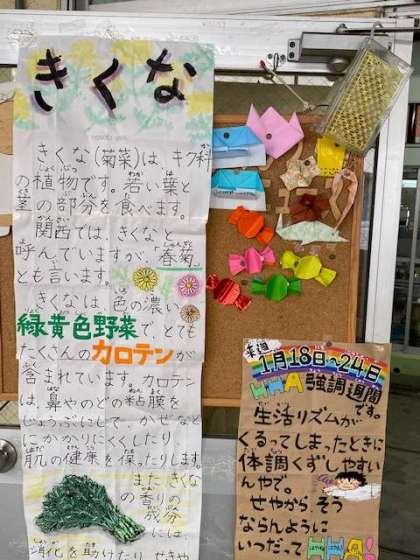 きくな
きくな(菊菜)は、キク科
の植物です。若い葉と
茎の部分を食べます。
関西では、きくなと
呼んでいますが、「春菊」
とも言います。
きくなは、色の濃い
緑黄色野菜で、とても
たくさんのカロテンが
含まれています。カロテン
は、鼻やのどの粘膜を
じょうぶにして、かぜなど
にかかりにくくしたり
肌の健康を保ったりします。
また、きくな
の香りの
成分
には、
消化を助けたり、せきや
来週
1月18日~24日
HHA強調週間
です。
生活リズムが
くるってしまったときに
体調くずしやすい
んやで。
せやから、そう
ならんように
いつだってHHA!